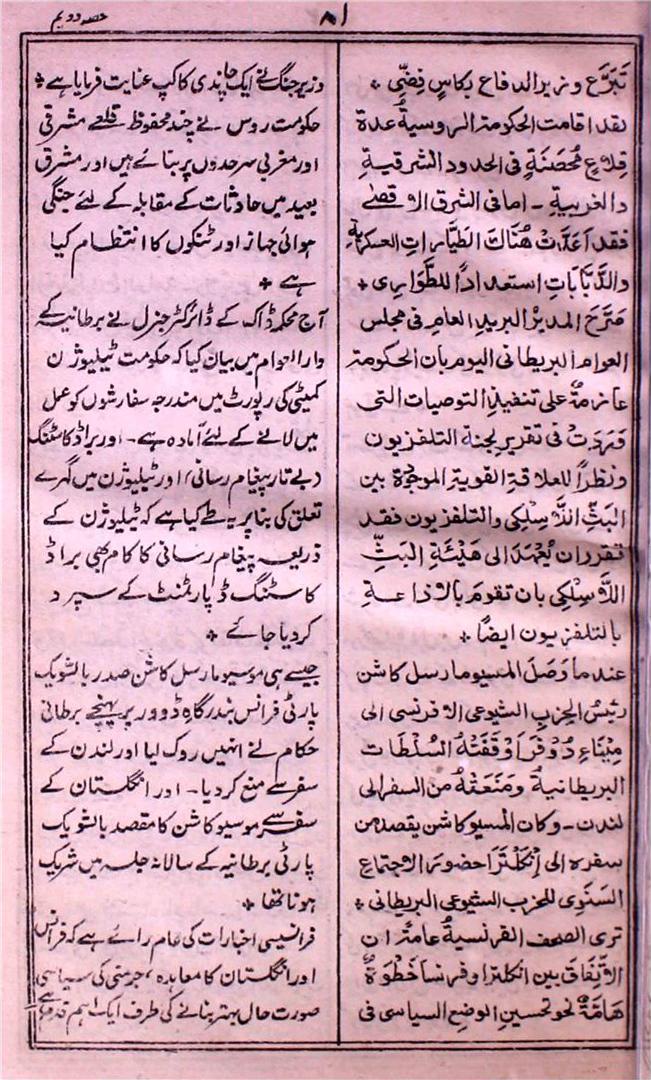 ۸۱
حصہ دویم
تَبَرَّع وزیر الدفاع بکاسٍ فِضّی *
لقد اقامت الحکومة الروسیةُ عدة
قِلاعٍ مُحصَنَةٍ فی الحدود الشرقیةِ
والغربیةِ ـ اما فی الشرق الاقصٰے
فقد اَعَدَّتْ هُنَاكَ الطَیَّاراتِ العسکریة
والدَّبَّاباتِ استعدادًا للطَّوَارِی *
صَرَّحَ المدیرُ البریدِ العام فی مجلس
العوام البریطانی الیوم بان الحکومة
عازمةٌ علی تنفیذِ التوصیات التی
وَرَدَتْ فی تقریرِ لجنة التلفزیون
ونظرًا للعلاقةِ القویةِ الموجودة بین
البَثِّ اللَّاسِلکِی والتلفزیون فقد
تقرر ان یُعْهَدَ الی هَیْئَةِ البَثِّ
اللَّاسِلکِی بان تقومَ بالاذاعةِ
بالتلفزیون ایضًا *
عندما وَصَلَ المسیو مارسل کاشن
رئیسُ الحزبِ الشیوعی الافرنسی الی
مِیْنَاءِ دُوْفَرَ اَوْقَفَتْهُ السُلْطَات
البریطانیةُ ومَنَعَتْهُ من السفر الی
لندن ـ وکان المسیو کاشن یقصد من
سفره الی اِنْکلترَا حضورَ الاجتماع
السَنَوِی للحزب الشیوعی البریطانی *
تری الصحف الفرنسیةُ عامةً ان
الاِتِّفاقَ بین انکلترا وفرنسا خَطْوَةٌ
هَامَّةٌ نحو تحسینِ الوضعِ السیاسی فی
وزیر جنگ نے ایک چاندی کا کپ عنایت فرمایا ہے *
حکومت روس نے چند محفوظ قلعے مشرقی
اور مغربی سرحدوں پر بنائے ہیں اور مشرق
بعید میں حادثات کے مقابلہ کے لئے جنگی
ہوائی جہاز اور ٹنکوں کا انتظام کیا
ہے *
آج محکمہ ڈاک کے ڈائرکٹر جنرل نے برطانیہ کے
دارالعوام میں بیان کیا کہ حکومت ٹیلیوژن
کمیٹی کی رپورٹ میں مندرجہ سفارشوں کو عمل
میں لانے کے لئے آمادہ ہے۔ اور براڈ کاسٹنگ
(بے تار پیغام رسانی) اور ٹیلیوژن میں گہرے
تعلق کی بنا پر یہ طے کیا ہے کہ ٹیلیوژن کے
ذریعہ پیغام رسانی کا کام بھی براڈ
کاسٹنگ ڈپارٹمنٹ کے سپرد
کر دیا جائے *
جیسے ہی موسیو مارسل کاشن صدر بالشویک
پارٹی فرانس بندرگاہ ڈوور پر پہنچے برطانی
حکام نے انہیں روک لیا اور لندن کے
سفر سے منع کر دیا۔ اور انگلستان کے
سفر سے موسیو کاشن کا مقصد بالشویک
پارٹی برطانیہ کے سالانہ جلسہ میں شریک
ہونا تھا *
فرانسیسی اخبارات کی عام رائے ہے کہ فرانس
اور انگلستان کا معاہدہ، جرمنی کی سیاسی
صورت حال بہتر بنانے کی طرف ایک اہم قدم ہے